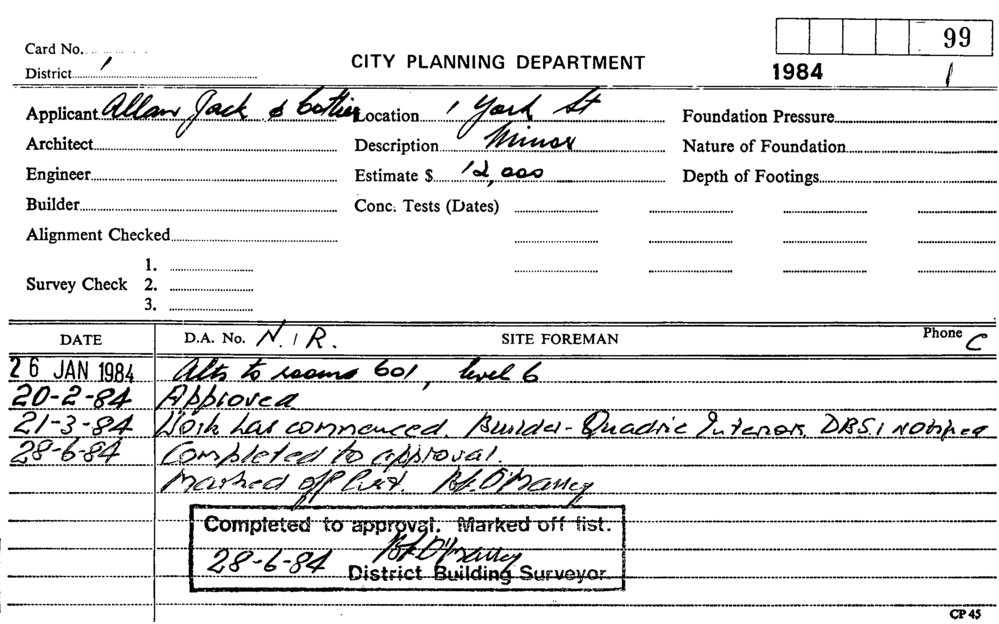 99
Card No.
CITY PLANNING DEPARTMENT
District 1
1984 1
Applicant Allan Jack & Cottier Location 1 York St Foundation Pressure
Architect Description Minor Nature of Foundation
Engineer Estimate $ 12,000 Depth of Footings
Builder Conc. Tests (Dates)
Alignment Checked
1.
Survey Check 2.
3.
DATE D.A. No. N.I.R. SITE FOREMAN Phone C
26 JAN 1984 Alts to rooms 601, level 6
20-2-84 Approved
21-3-84 Work has commenced. Builder - Quadric Interiors. DBS.1 notified
28-6-84 Completed to approval.
Marked off List.
Completed to approval. Marked off list.
28-6-84
District Building Surveyor.
CP 45